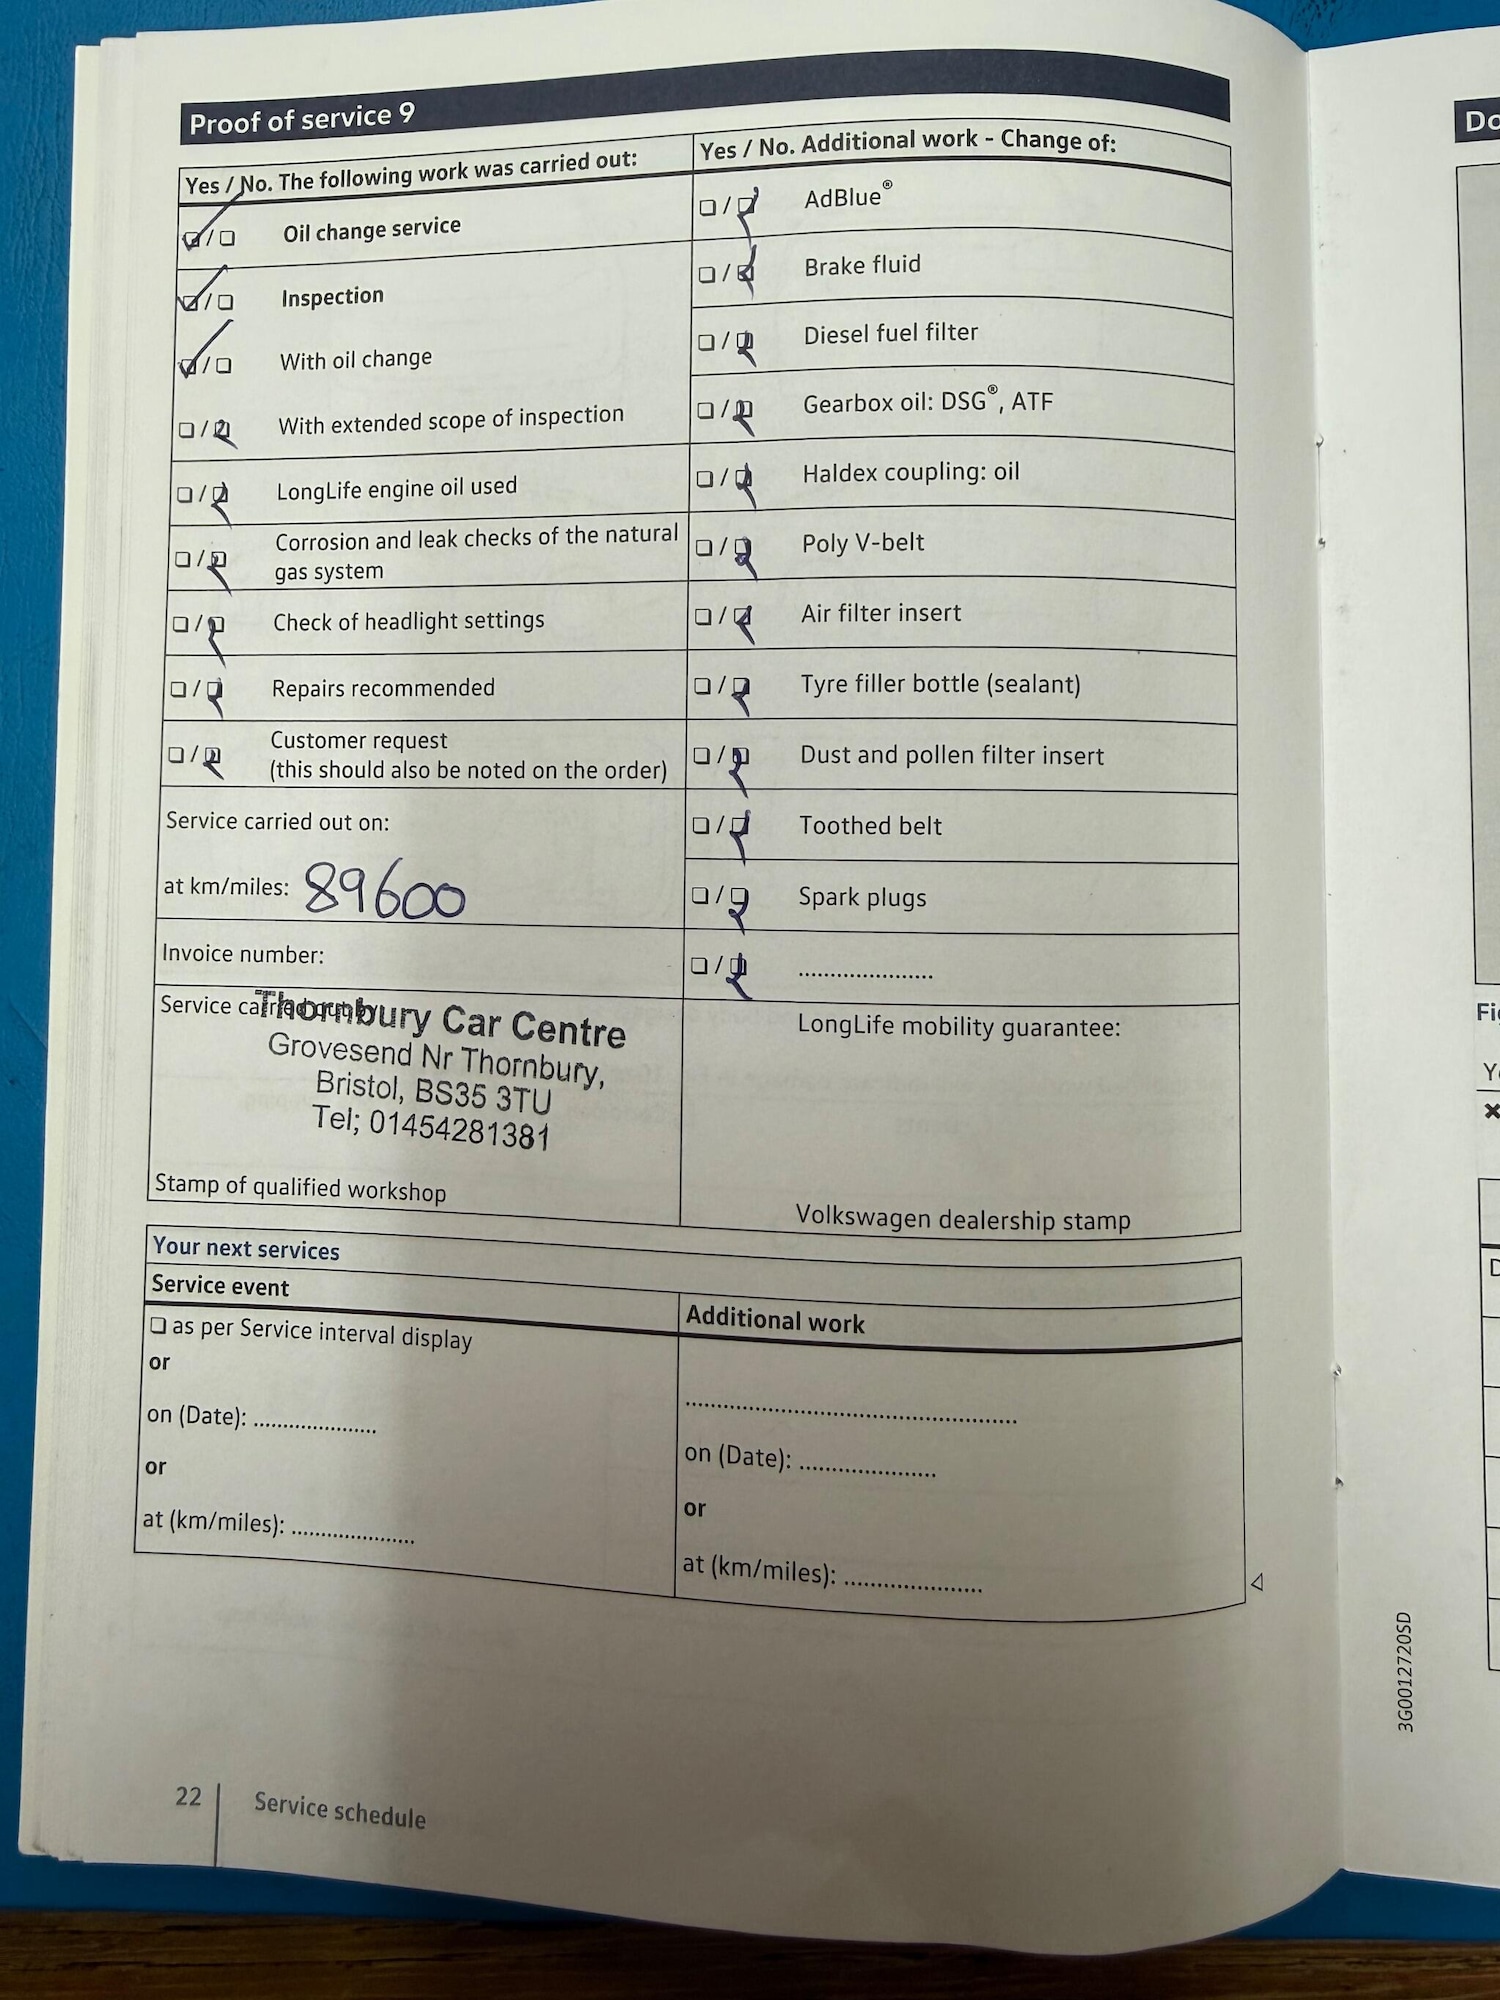 Proof of service 9
Yes / No. The following work was carried out:
Oil change service
Inspection
With oil change
With extended scope of inspection
LongLife engine oil used
Corrosion and leak checks of the natural
gas system
Check of headlight settings
Repairs recommended
Customer request
(this should also be noted on the order)
Service carried out on:
at km/miles: 89600
Invoice number:
Service carried out by:
Thornbury Car Centre
Grovesend Nr Thornbury,
Bristol, BS35 3TU
Tel; 01454281381
Stamp of qualified workshop
Yes / No. Additional work - Change of:
AdBlue®
Brake fluid
Diesel fuel filter
Gearbox oil: DSG®, ATF
Haldex coupling: oil
Poly V-belt
Air filter insert
Tyre filler bottle (sealant)
Dust and pollen filter insert
Toothed belt
Spark plugs
.....................
LongLife mobility guarantee:
Volkswagen dealership stamp
Your next services
Service event
as per Service interval display
or
on (Date): ....................
or
at (km/miles): ....................
Additional work
......................................................
on (Date): ......................
or
at (km/miles): ......................
22
Service schedule
3G0012720SD
Do
Fi
Y
D